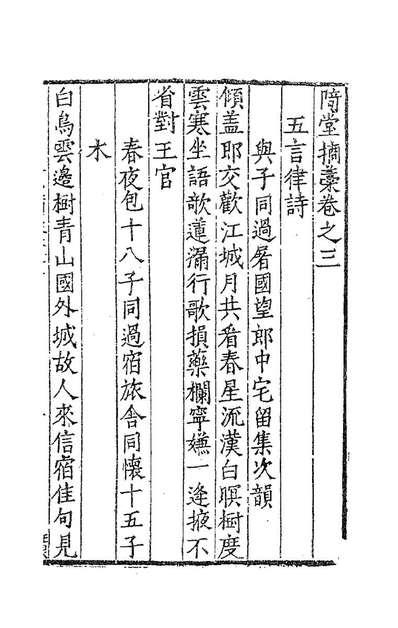 隋堂摘藁卷之三
五言律詩
與子同過屠國望郎中宅留集次韻
傾盖即交歡江城月共看春星流漢白暝樹度
雲寒坐語欹蓮漏行歌損藥欄寧嫌一逢掖不
省對王官
春夜包十八子同過宿旅舎同懷十五子
木
白鳥雲邊樹青山國外城故人來信宿佳句見